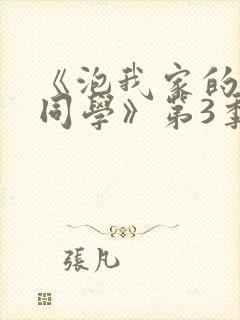 《泡我家的
同學》第3季
張凡